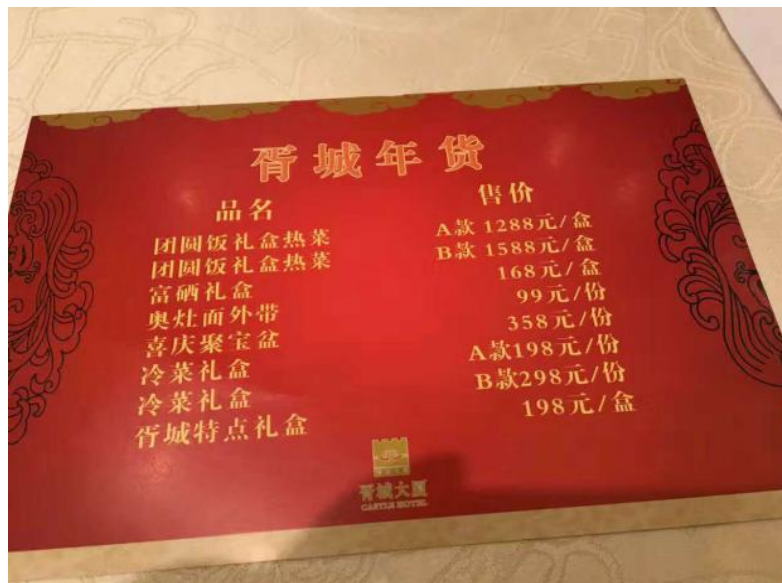 胥城年货
品名 售价
团圆饭礼盒热菜 A款 1288元/盒
团圆饭礼盒热菜 B款 1588元/盒
富硒礼盒 168元/盒
奥灶面外带 99元/份
喜庆聚宝盆 358元/份
冷菜礼盒 A款198元/份
冷菜礼盒 B款298元/份
胥城特点礼盒 198元/盒
胥城大厦
CASTLE HOTEL